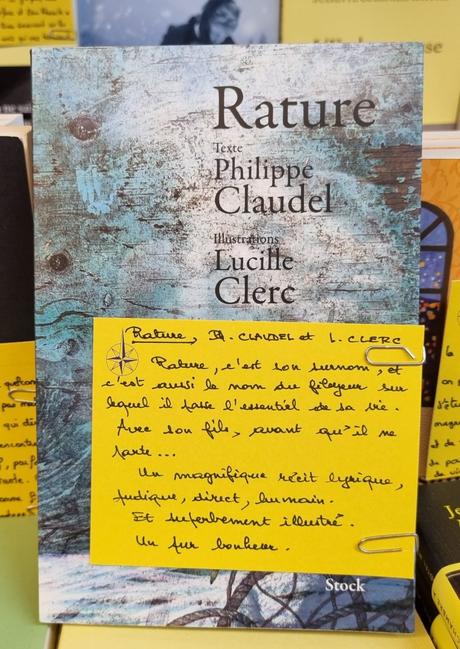 Rature
Texte
Philippe
Claudel
Illustrations
Lucille
Clerc
Rature, Ph. CLAUDEL et L. CLERC
Rature, c'est son surnom, et
c'est aussi le nom du fileyeur sur
lequel il passe l'essentiel de sa vie.
Avec son fils, avant qu'il ne
parte...
Un magnifique récit lyrique,
pudique, direct, humain.
Et superbement illustré.
Un pur bonheur.
Stock